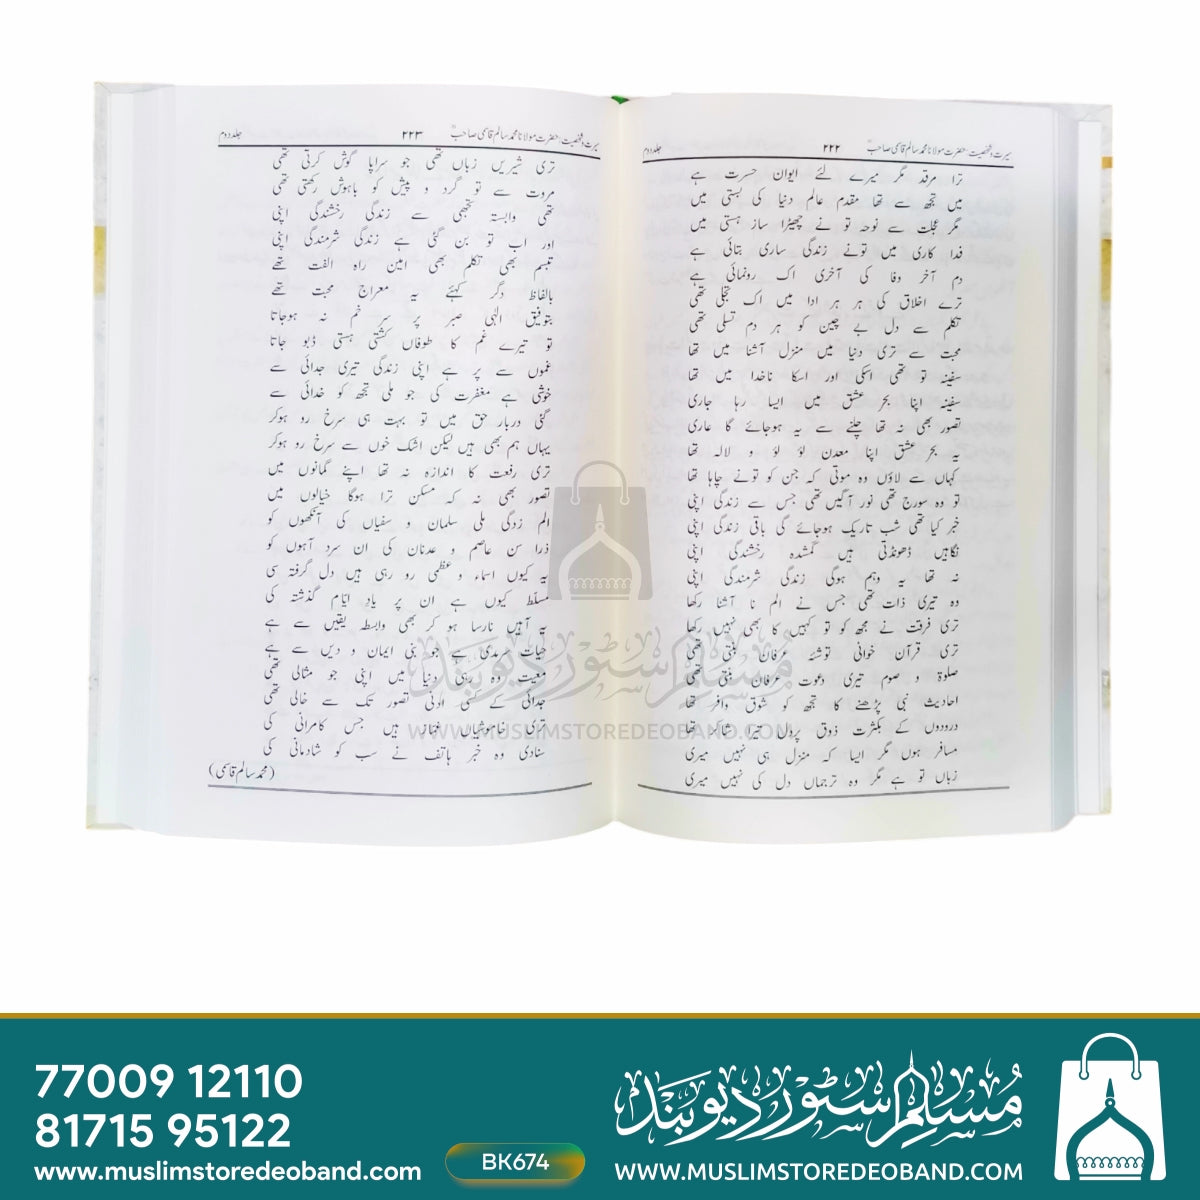 سیرت و شخصیت، حضرت مولانا محمد سالم قاسمی صاحبؒ ۲۲۲ جلد دوم
ترا مرقد مگر میرے لئے ایوان حسرت ہے
میں تجھ سے تھا مقدم عالم دنیا کی بستی میں
مگر عجلت سے نوحہ تو نے چھیڑا ساز ہستی میں
فدا کاری میں تونے زندگی ساری بتائی ہے
دم آخر وفا کی آخری اک رونمائی ہے
ترے اخلاق کی ہر ہر ادا میں اک تجلی تھی
تکلم سے دل بے چین کو ہر دم تسلی تھی
محبت سے تری دنیا میں منزل آشنا میں تھا
سفینہ تو تھی اسکی اور اسکا ناخدا میں تھا
سفینہ اپنا بحر عشق میں ایسا رہا جاری
تصور بھی نہ تھا چلنے سے یہ ہوجائے گا عاری
یہ بحر عشق اپنا معدن لؤ لؤ و لالہ تھا
کہاں سے لاؤں وہ موتی کہ جن کو تونے چاہا تھا
تو وہ سورج تھی نور آگیں تھی جس سے زندگی اپنی
خبر کیا تھی شب تاریک ہوجائے گی باقی زندگی اپنی
نگاہیں ڈھونڈتی ہیں گمشدہ رخشندگی اپنی
نہ تھا یہ وہم ہوگی زندگی شرمندگی اپنی
وہ تیری ذات تھی جس نے الم نا آشنا رکھا
تری فرقت نے مجھ کو تو کہیں کا بھی نہیں رکھا
تری قرآن خوانی توشئہ عرفان بنتی تھی
صلوٰۃ و صوم تیری دعوت عرفان بنتی تھی
احادیث نبی پڑھنے کا تجھ کو شوق وافر تھا
درودوں کے بکثرت ذوق پر دل تیرا شاکر تھا
مسافر ہوں مگر ایسا کہ منزل ہی نہیں میری
زباں تو ہے مگر وہ ترجماں دل کی نہیں میری
سیرت و شخصیت، حضرت مولانا محمد سالم قاسمی صاحبؒ ۲۲۳ جلد دوم
تری شیریں زباں تھی جو سراپا گوش کرتی تھی
مروت سے تو گرد و پیش کو باہوش رکھتی تھی
تھی وابستہ تجھی سے زندگی رخشندگی اپنی
اور اب تو بن گئی ہے زندگی شرمندگی اپنی
تبسم بھی تکلم بھی امین راہ الفت تھے
بالفاظ دگر کہئے یہ معراج محبت تھے
بتوفیق الٰہی صبر پر سر خم نہ ہوجاتا
تو تیرے غم کا طوفاں کشتی ہستی ڈبو جاتا
غموں سے پر ہے اپنی زندگی تیری جدائی سے
خوشی ہے مغفرت کی جو ملی تجھ کو خدائی سے
گئی دربار حق میں تو بہت ہی سرخ رو ہوکر
یہاں ہم بھی ہیں لیکن اشک خوں سے سرخ رو ہوکر
تری رفعت کا اندازہ نہ تھا اپنے گمانوں میں
تصور بھی نہ کہ مسکن ترا ہوگا خیالوں میں
الم زدگی ملی سلمان و سفیاں کی آنکھوں کو
ذرا سن عاصم و عدنان کی ان سرد آہوں کو
یہ کیوں اسماء و عظمی رو رہی ہیں دل گرفتہ سی
مسلّط کیوں ہے ان پر یاد ایّام گذشتہ کی
یہ آہیں نارسا ہو کر بھی وابستہ یقیں سے ہے
حیات سرمدی ہے جو بنی ایمان و دیں سے ہے
معیت وہ رہی دنیا میں اپنی جو مثالی تھی
جدائی کے کسی ادنی تصور تک سے خالی تھی
تری خاموشیاں غماز ہیں جس کامرانی کی
سنادی وہ خبر ہاتف نے سب کو شادمانی کی
(محمد سالم قاسمی)
مسلم سٹور دیوبند
WWW.MUSLIMSTOREDEOBAND.COM
77009 12110
81715 95122
www.muslimstoredeoband.com
BK674
مسلم سٹور دیوبند
WWW.MUSLIMSTOREDEOBAND.COM